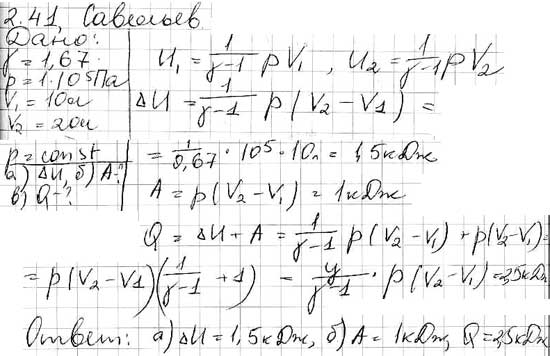 2.41, Савельев.
Дано:
γ = 1,67
p = 1·10⁵Па
V₁ = 10л
V₂ = 20л
p = const
а) ΔU, б) A-?
в) Q-?
U₁ = 1/(γ-1) pV₁, U₂ = 1/(γ-1) pV₂
ΔU = 1/(γ-1) p(V₂-V1) =
= 1/0,67 · 10⁵ · 10л = 1,5кДж
A = p(V₂-V₁) = 1кДж
Q = ΔU + A = 1/(γ-1) p(V₂-V₁) + p(V₂-V₁) =
= p(V₂-V1)(1/(γ-1) + 1) = γ/(γ-1) · p(V₂-V₁) = 2,5кДж
Ответ: а) ΔU = 1,5кДж, б) A = 1кДж, Q = 2,5кДж